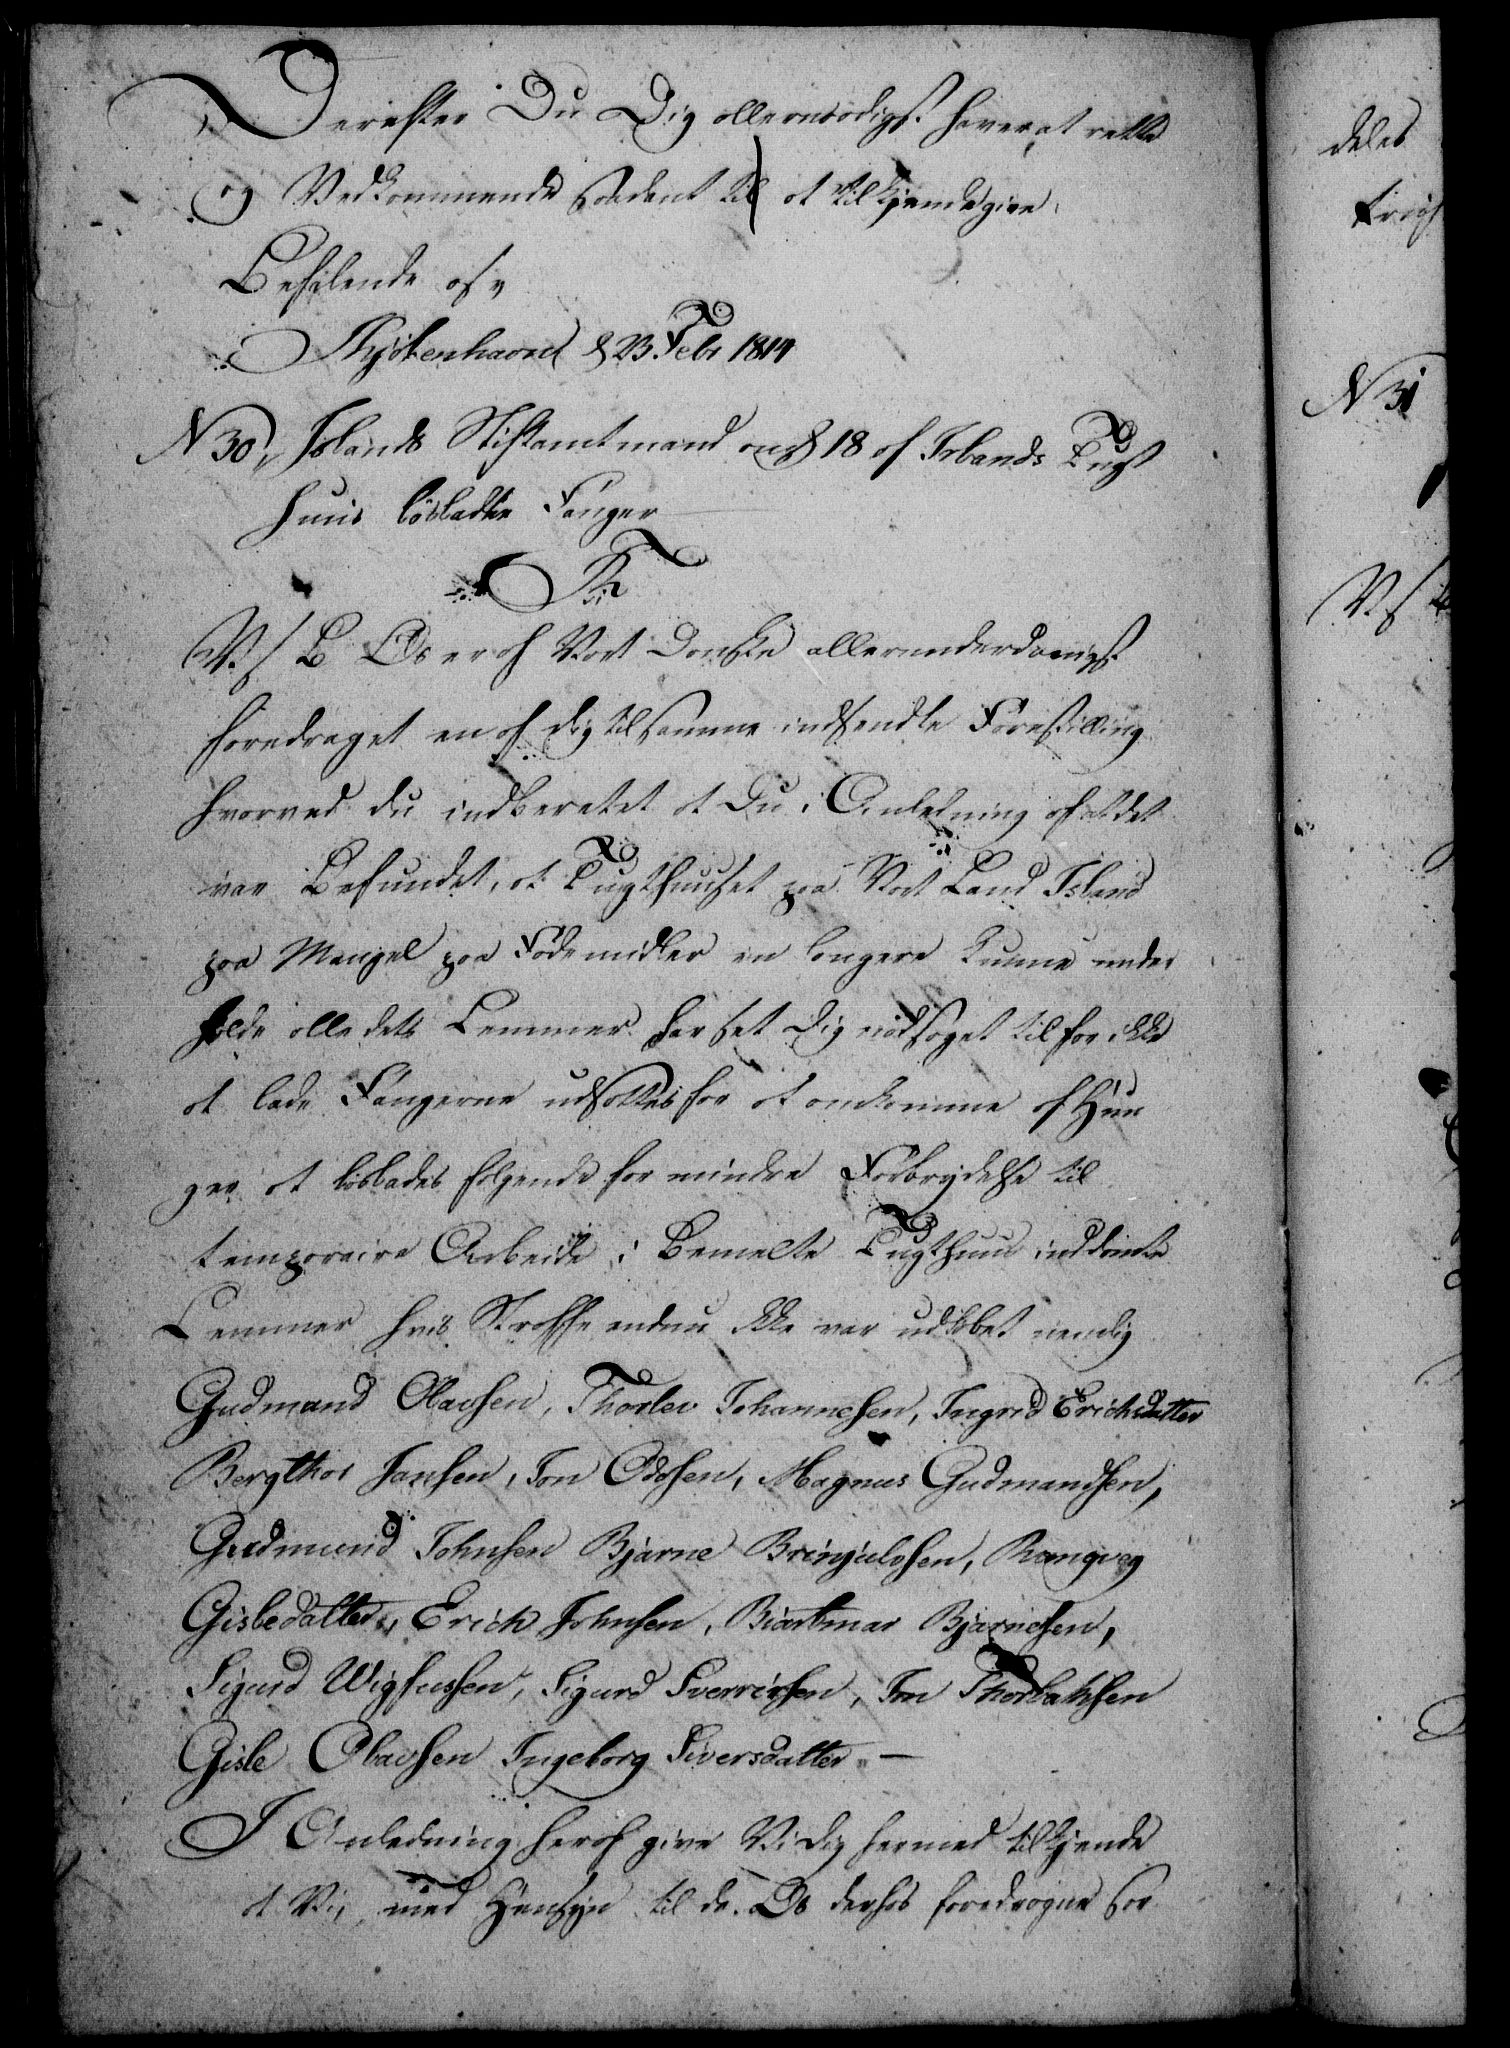 Derefter Du Dig allernaadigst haver at rette
og Vedkommende saadant til at tilkjendegive.
Befalende osv
Kjøbenhavn d 23 Febr 1814
N 30, Islands Stiftamtmand ang 18 af Islands Tugt
huus løsladte Fanger
F R
V. S B Os er af Vort Danske allerunderdanigst
foredraget en af dig til samme indsendte Forestilling
hvorved du indberetet at Du i Anledning af at det
var Befundet, at Tugthuuset paa Vort Land Island
paa Mangel paa Fødemidler ei længere kunne under
holde alle dets Lemmer har set Dig nødsaget til for ikke
at lade Fangerne udsættes for at omkomme af Hun
ger at løslades følgende for mindre Forbrydelse til
temporaire Arbeide i Bemelte Tugthuus inddømte
Lemmer hvis Straffe endnu ikke var udløbet nemlig
Gudmand Olavsen, Thorlev Johannesen, Ingrid Erichsdatter
Bergthor Jansen, Jon Odsen, Magnus Gudmandsen,
Gudmund Johnsen Bjarne Brinjulvsen, Rangveg
Gisledatter, Erich Johnsen, Biartmar Bjarnesen,
Sigurd Wigfussen, Sigurd Sverrirsen, Jon Thorlaksen
Gisle Olavsen Ingeborg Siversdatter —
I Anledning heraf give Vi dig hermed tilkjende
at Vi, med Hensyn til de Os derhos foredragne for
deles
N 31
V. S